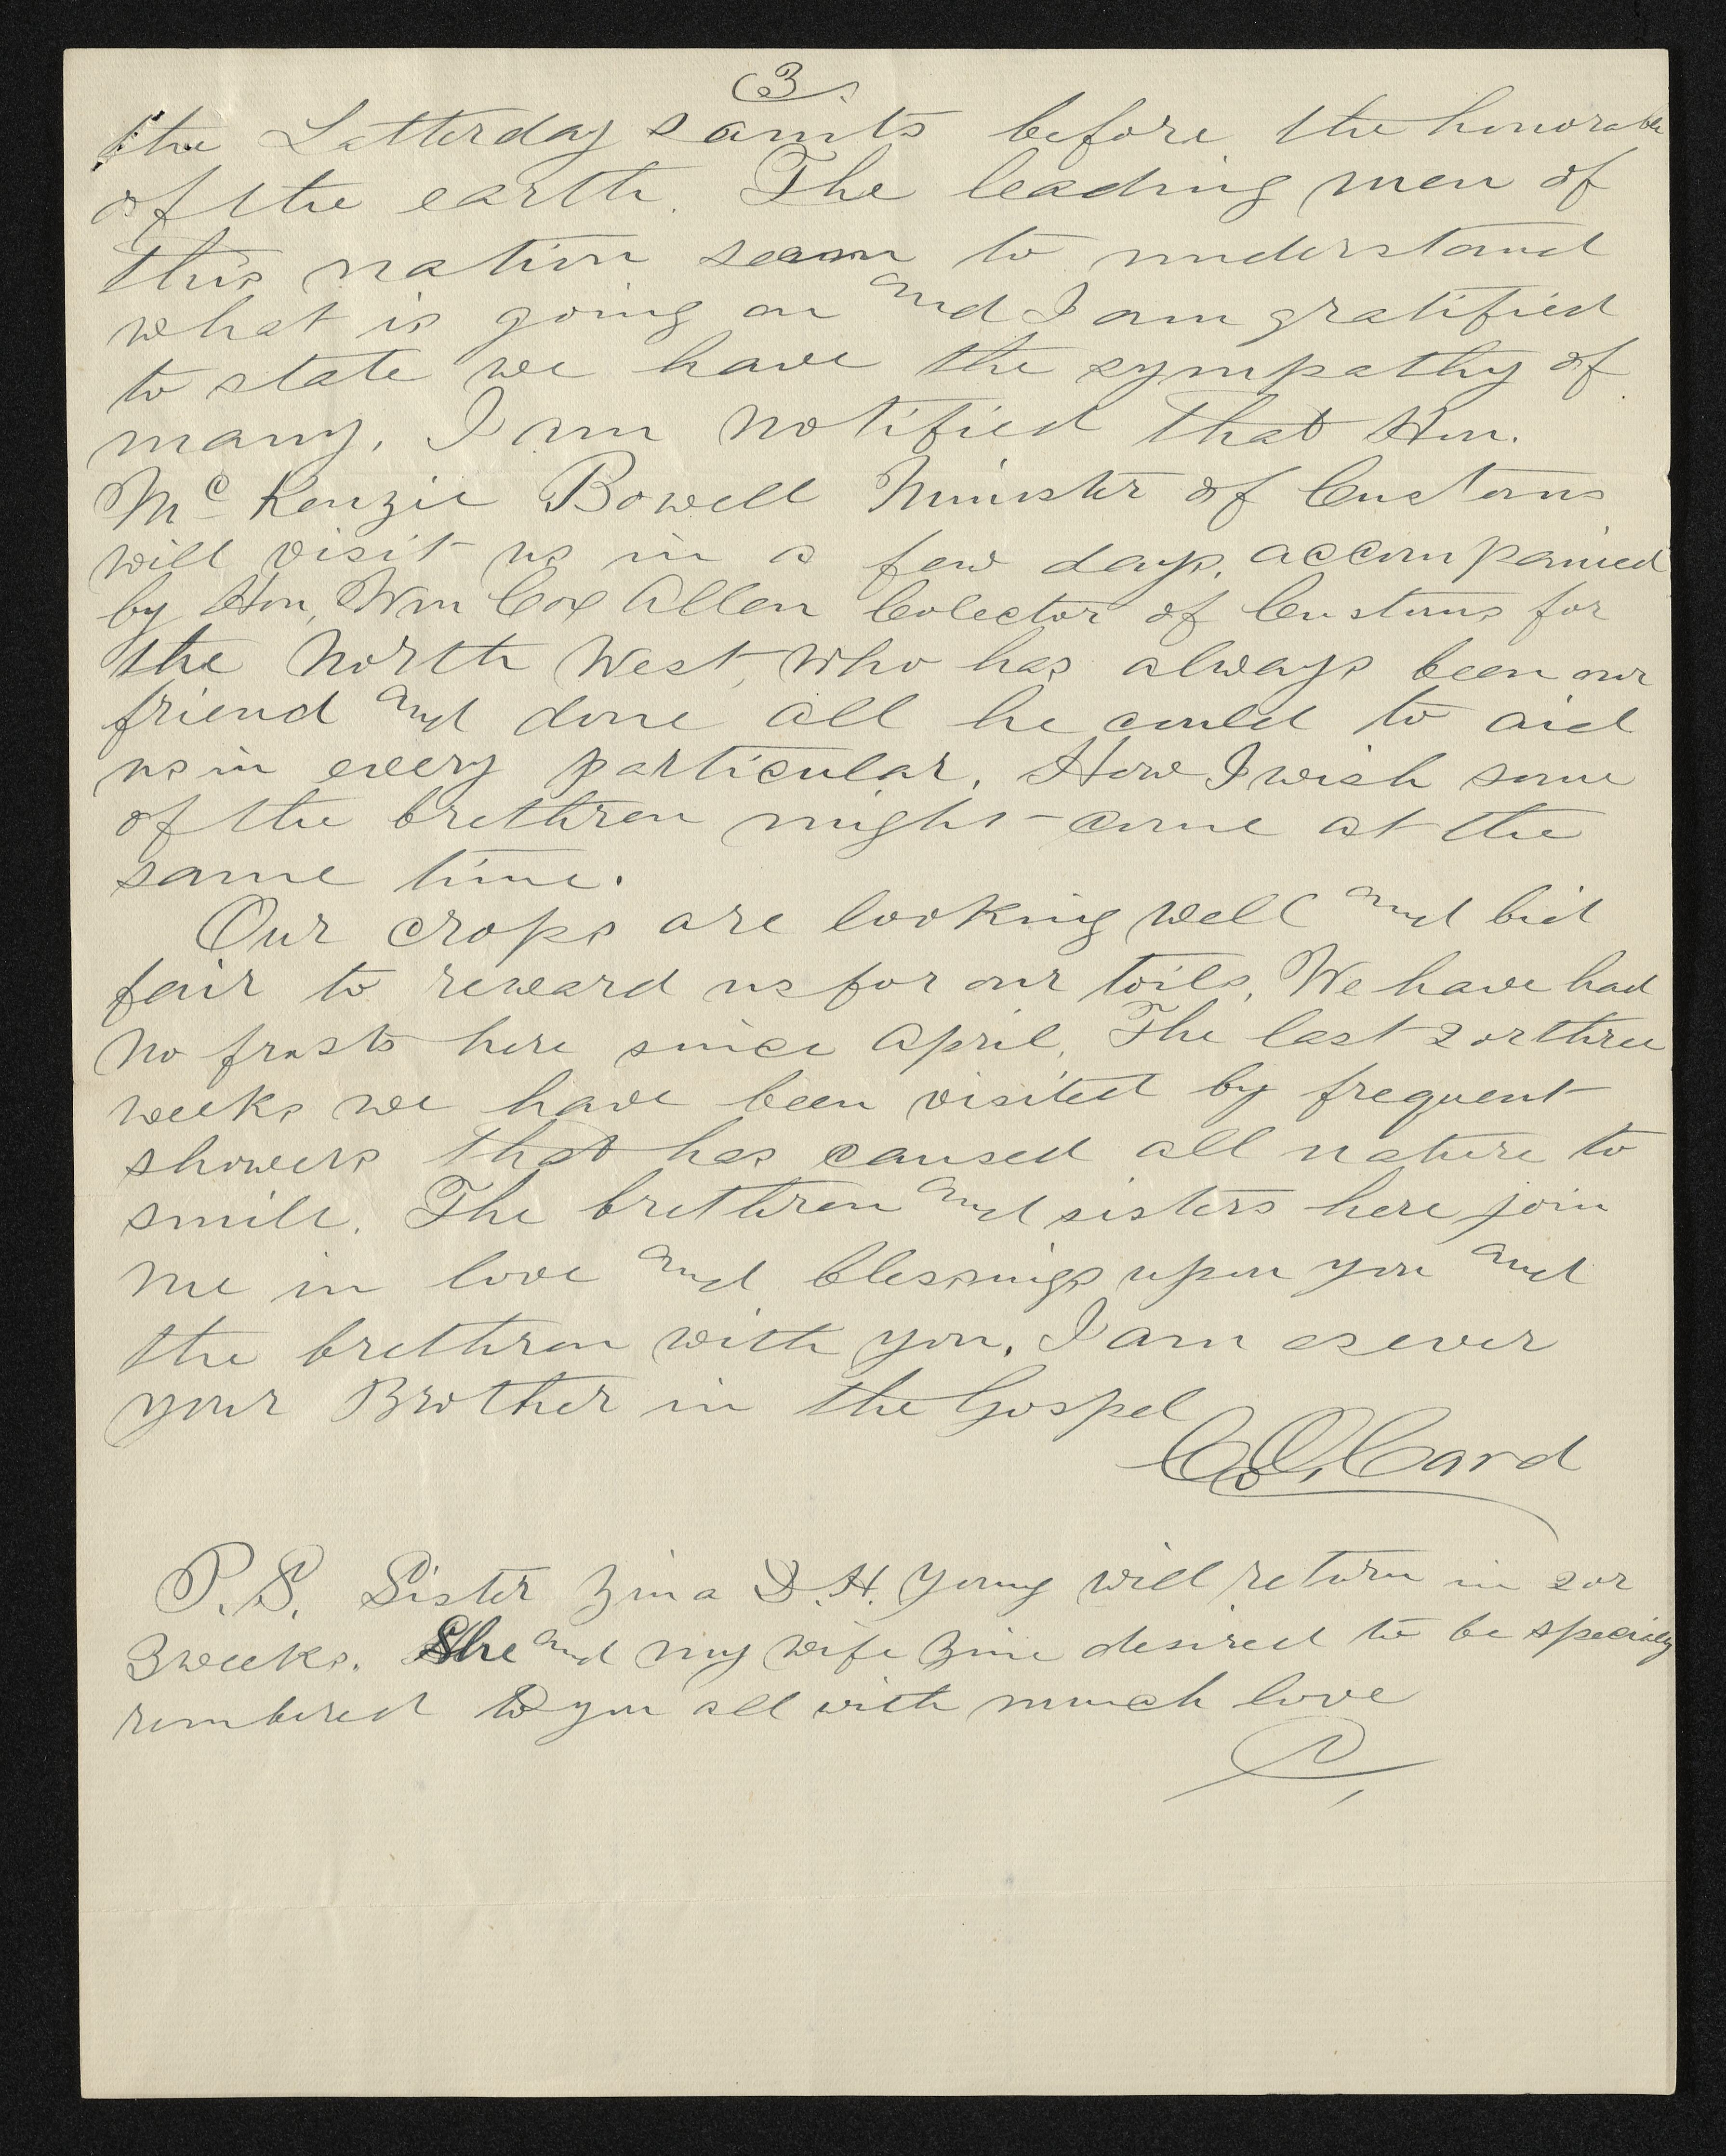 3
the Latterday saints before the honorable
of the earth. The leading men of
this nation seam to understand
what is going on and I am gratified
to state we have the sympathy of
many. I am notified that Hon.
Mc Kenzie Bowell Minister of Customs
will visit us in a few days, accompanied
by Hon, Wm Cox Allen Colector of Customs for
the North West, who has always been our
friend and done all he could to aid
us in every particular. How I wish some
of the brethren might come at the
same time.
Our crops are looking well and bid
fair to reward us for our toils. We have had
no frosts here since April. The last 2 or three
weeks we have been visited by frequent
showers that has caused all nature to
smile. The brethren and sisters here join
me in love and blessings upon you and
the brethren with you. I am as ever
your Brother in the Gospel
C. O. Card
P.S. Sister Zina D. H. Young will return in 2 or
3 weeks. She and my wife Zina desired to be specialy
rembered to you all with much love
C,